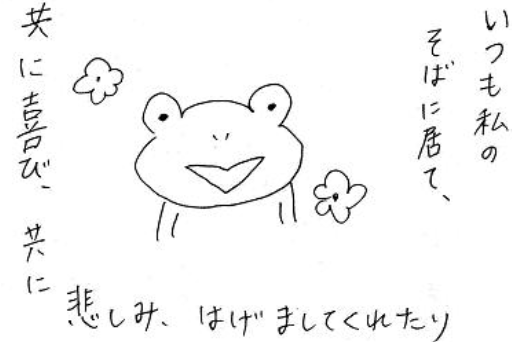 いつも私の
そばに居て、
共に喜び、共に
悲しみ、はげましてくれたり